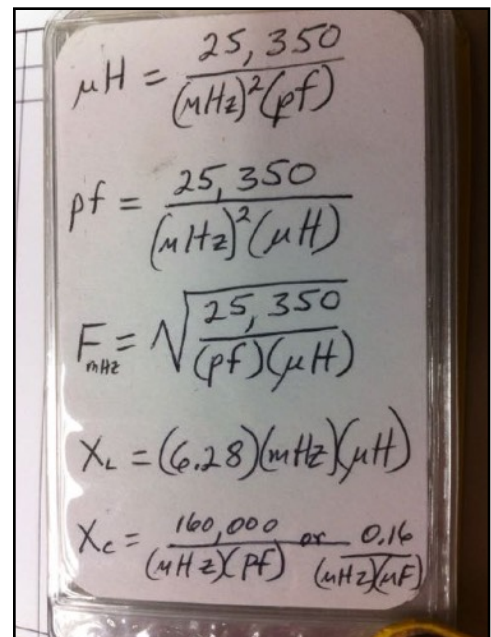 μH = 25,350 / (mHz)²(pf)
pf = 25,350 / (mHz)²(μH)
F mHz = √ 25,350 / (pf)(μH)
X_L = (6.28)(mHz)(μH)
X_C = 160,000 / (mHz)(pf) or 0.16 / (mHz)(μF)